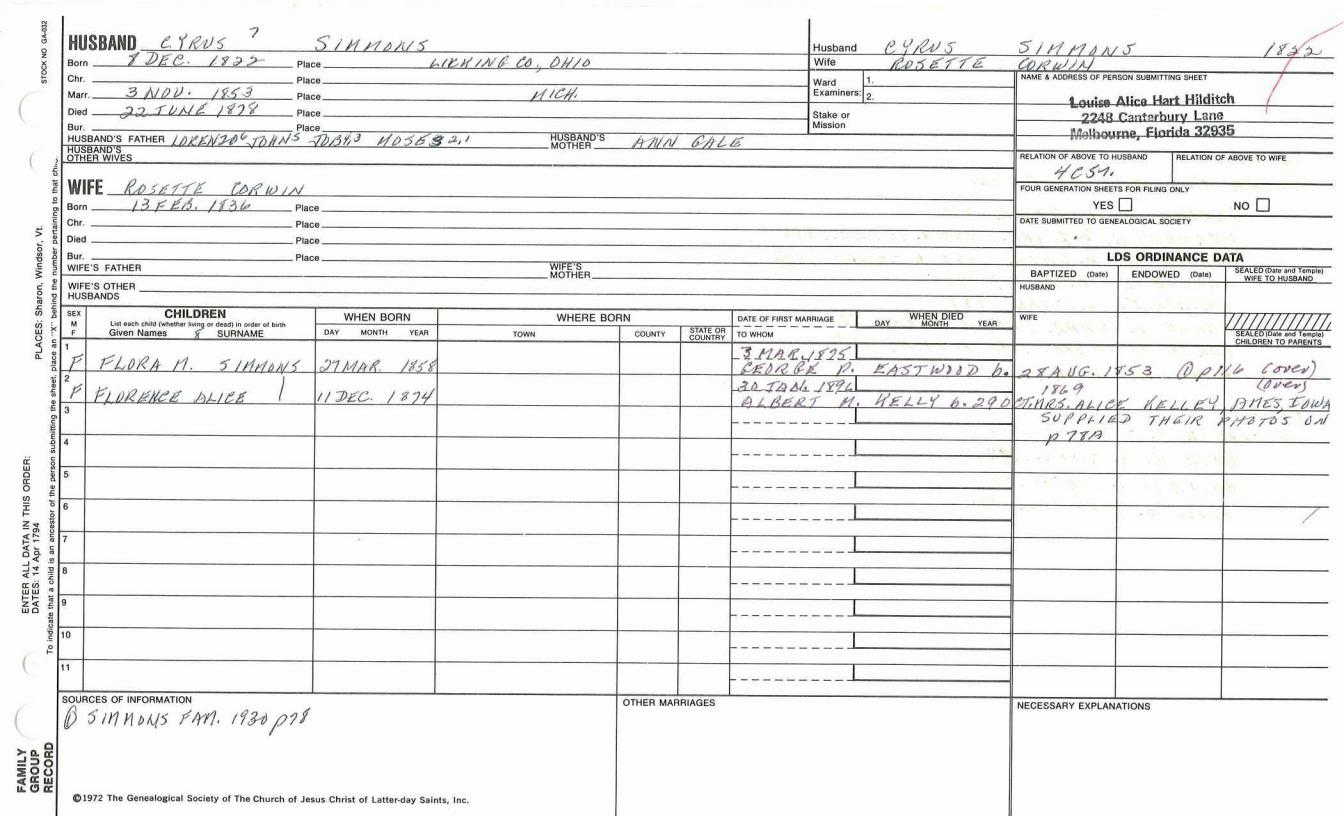 STOCK NO GA-032
HUSBAND CYRUS 7 SIMMONS
Born 8 DEC. 1822 Place LICKING CO., OHIO
Chr. Place
Marr. 3 NOV. 1853 Place MICH.
Died 22 JUNE 1878 Place
Bur. Place
HUSBAND'S FATHER LORENZO6 JOHN5 TOBY4,3 MOSES 2,1 HUSBAND'S MOTHER ANN GALE
HUSBAND'S OTHER WIVES
Husband CYRUS SIMMONS 1822
Wife ROSETTE CORWIN
Ward Examiners: 1. 2.
Stake or Mission
NAME & ADDRESS OF PERSON SUBMITTING SHEET
Louise Alice Hart Hilditch
2248 Canterbury Lane
Melbourne, Florida 32935
RELATION OF ABOVE TO HUSBAND RELATION OF ABOVE TO WIFE
FOUR GENERATION SHEETS FOR FILING ONLY
YES NO
DATE SUBMITTED TO GENEALOGICAL SOCIETY
WIFE ROSETTE CORWIN
Born 13 FEB. 1836 Place
Chr. Place
Died Place
Bur. Place
WIFE'S FATHER WIFE'S MOTHER
WIFE'S OTHER HUSBANDS
LDS ORDINANCE DATA
BAPTIZED (Date) ENDOWED (Date) SEALED (Date and Temple) WIFE TO HUSBAND
HUSBAND
WIFE
SEALED (Date and Temple) CHILDREN TO PARENTS
SEX M F
CHILDREN
List each child (whether living or dead) in order of birth
Given Names 8 SURNAME
WHEN BORN
DAY MONTH YEAR
WHERE BORN
TOWN COUNTY STATE OR COUNTRY
DATE OF FIRST MARRIAGE
TO WHOM
WHEN DIED
DAY MONTH YEAR
1 3 MAR. 1875
F FLORA M. SIMMONS 27 MAR. 1858 GEORGE P. EASTWOOD b. 28 AUG. 1853 @ p116 (over)
2 20 JAN. 1896 1869 (over)
F FLORENCE ALICE 11 DEC. 1874 ALBERT M. KELLY b. 29 OCT. MRS. ALICE KELLEY, AMES, IOWA
3 SUPPLIED THEIR PHOTOS ON
p 78A
4
5
6
7
8
9
10
11
SOURCES OF INFORMATION
① SIMMONS FAM. 1930 p78
OTHER MARRIAGES
NECESSARY EXPLANATIONS
©1972 The Genealogical Society of The Church of Jesus Christ of Latter-day Saints, Inc.
PLACES: Sharon, Windsor, Vt.
ENTER ALL DATA IN THIS ORDER:
DATES: 14 Apr 1794
To indicate that a child is an ancestor of the person submitting the sheet, place an "X" behind the number pertaining to that
FAMILY
GROUP
RECORD